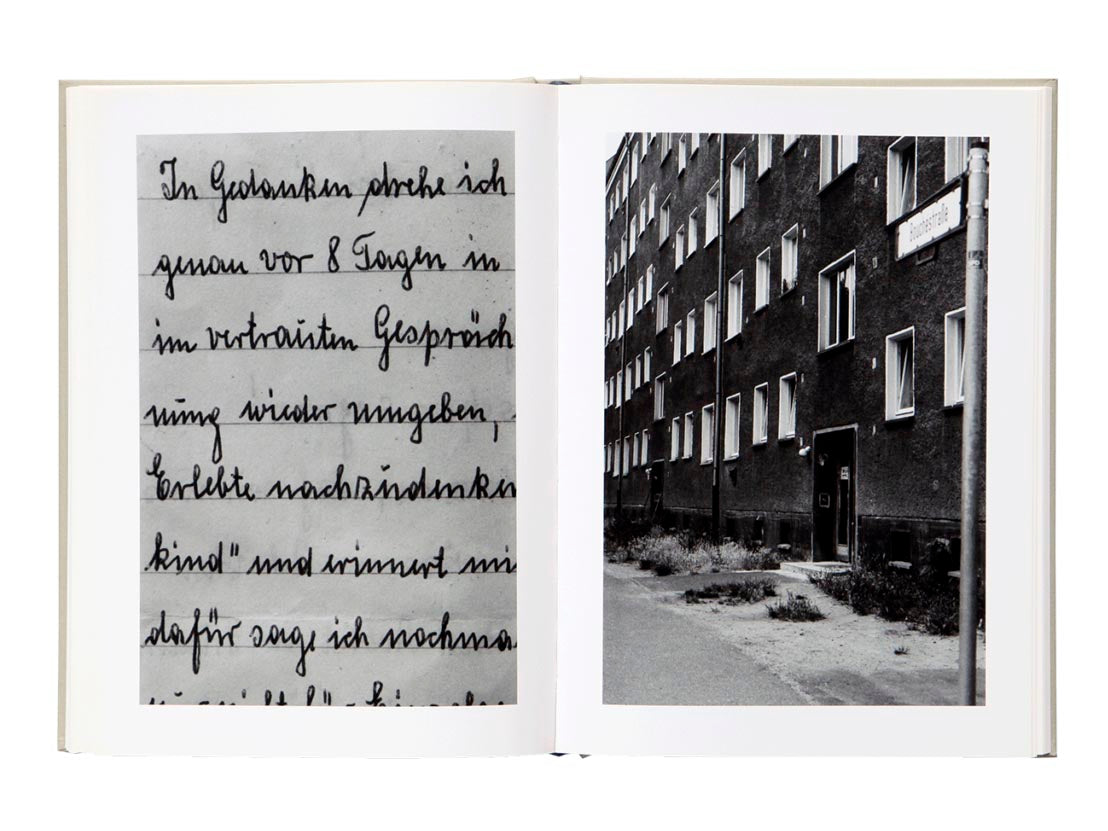 In Gedanken drehe ich
genau vor 8 Tagen in
im vertrauten Gespräch
nung wieder umgeben,
Erlebte nachzudenken
kind" und erinnert mi
dafür sage ich nochma
Bouchéstraße